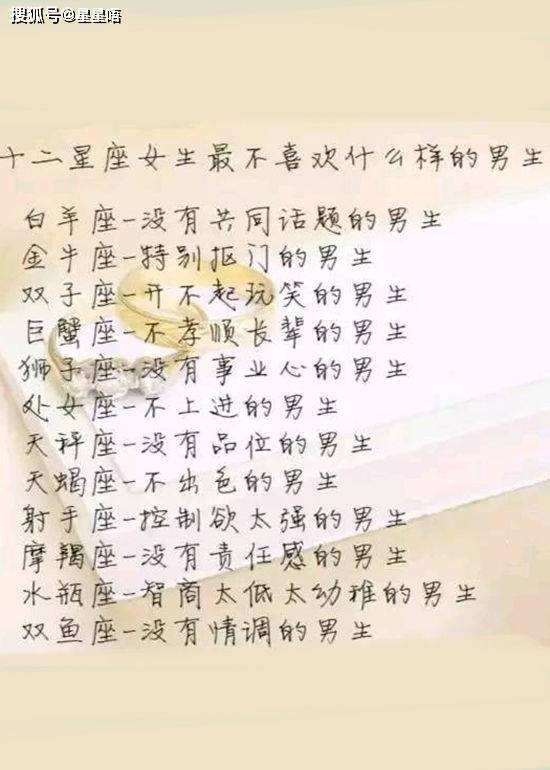 搜狐号@星星唔
十二星座女生最不喜欢什么样的男生
白羊座-没有共同话题的男生
金牛座-特别抠门的男生
双子座-开不起玩笑的男生
巨蟹座-不孝顺长辈的男生
狮子座-没有事业心的男生
处女座-不上进的男生
天秤座-没有品位的男生
天蝎座-不出色的男生
射手座-控制欲太强的男生
摩羯座-没有责任感的男生
水瓶座-智商太低太幼稚的男生
双鱼座-没有情调的男生